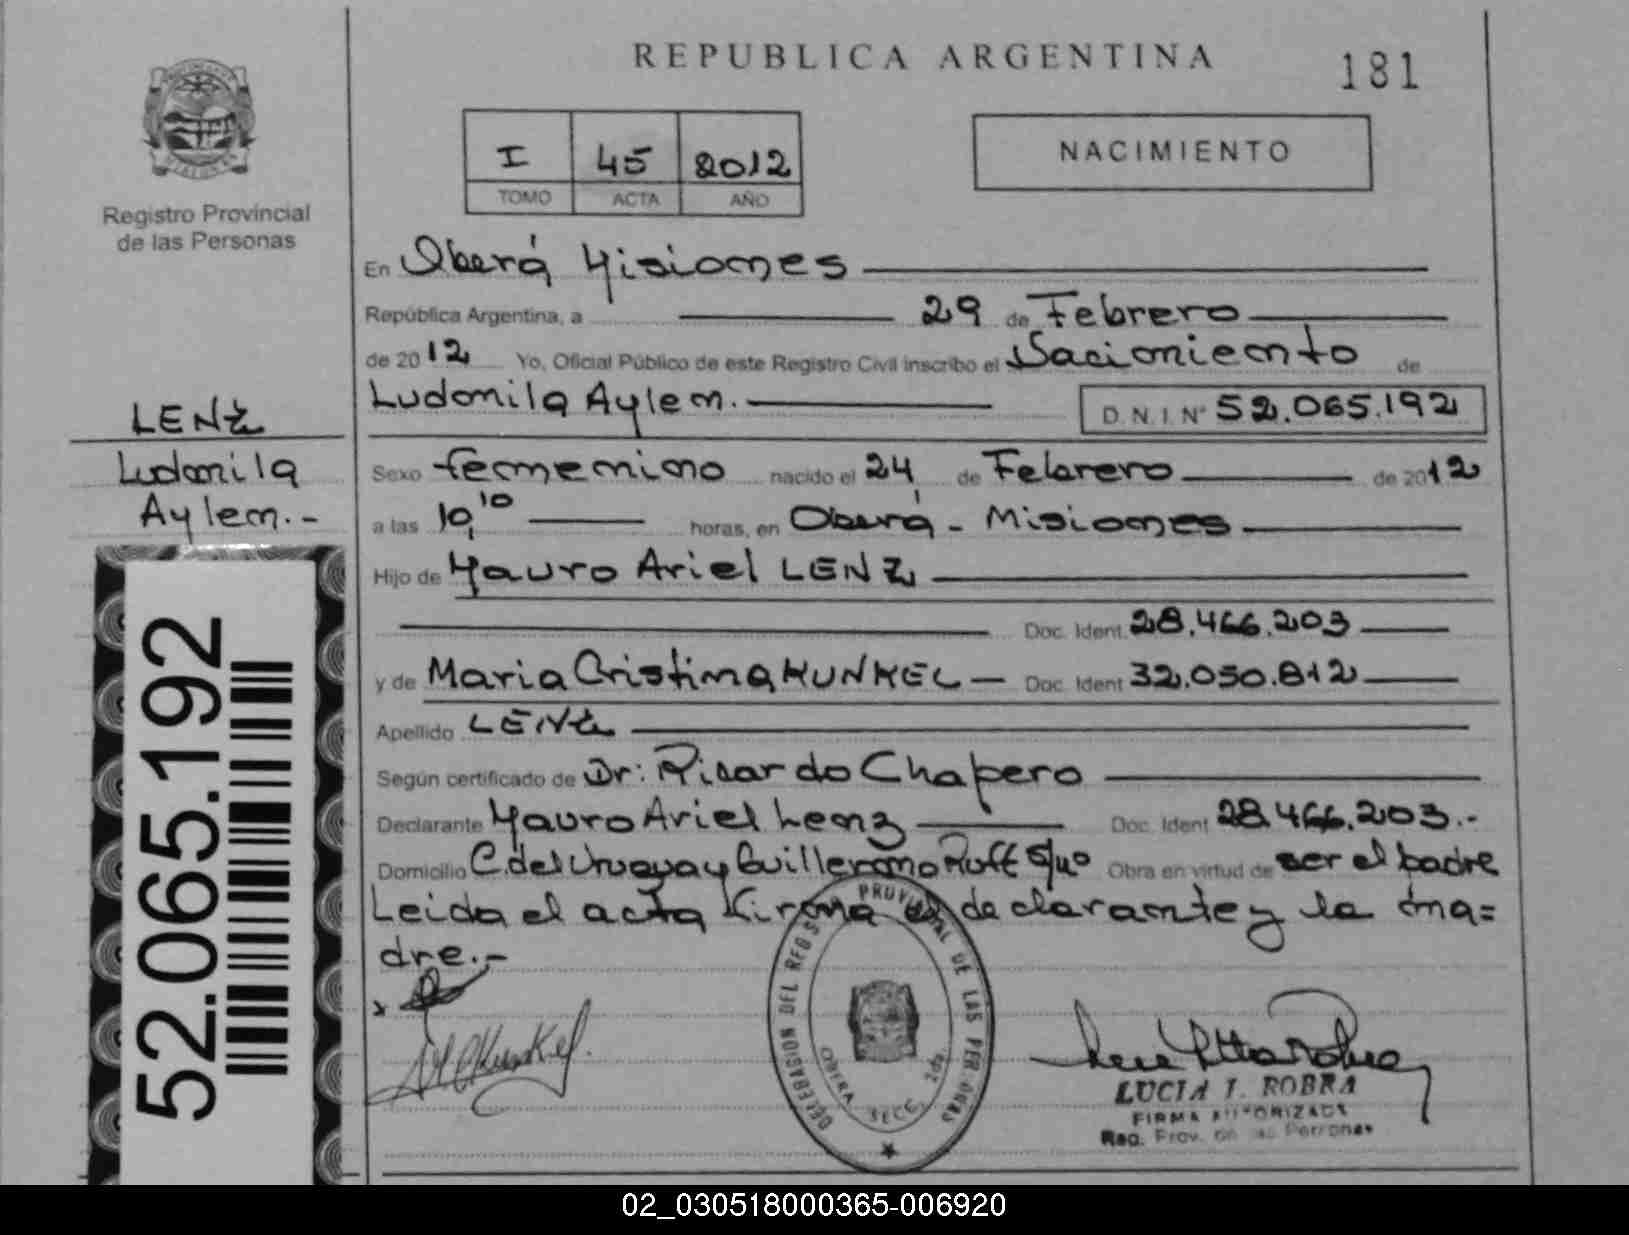 REPUBLICA ARGENTINA
181
I 45 2012
TOMO ACTA AÑO
NACIMIENTO
Registro Provincial
de las Personas
En Oberá Misiones
República Argentina, a 29 de Febrero
de 2012 Yo, Oficial Público de este Registro Civil inscribo el Nacimiento de
Ludmila Aylen.
D.N.I. N° 52.065.192
LENZ
Ludmila
Aylen.-
Sexo femenino nacido el 24 de Febrero de 2012
a las 10,10 horas, en Oberá - Misiones
Hijo de Mauro Ariel LENZ
Doc. Ident. 28.466.203
y de Maria Cristina KUNKEL Doc. Ident 32.050.812
Apellido LENZ
Según certificado de Dr: Ricardo Chapero
Declarante Mauro Ariel Lenz Doc. Ident 28.466.203.-
Domicilio C. del Uruguay Guillermo Ruff S/nº Obra en virtud de ser el padre
Leida el acta firma el declarante y la ma=
dre.-
52.065.192
DELEGACION DEL REGISTRO PROVINCIAL DE LAS PERSONAS
OBERA SECC. 2da
LUCIA I. ROBRA
FIRMA AUTORIZADA
Reg. Prov. de las Personas
02_030518000365-006920